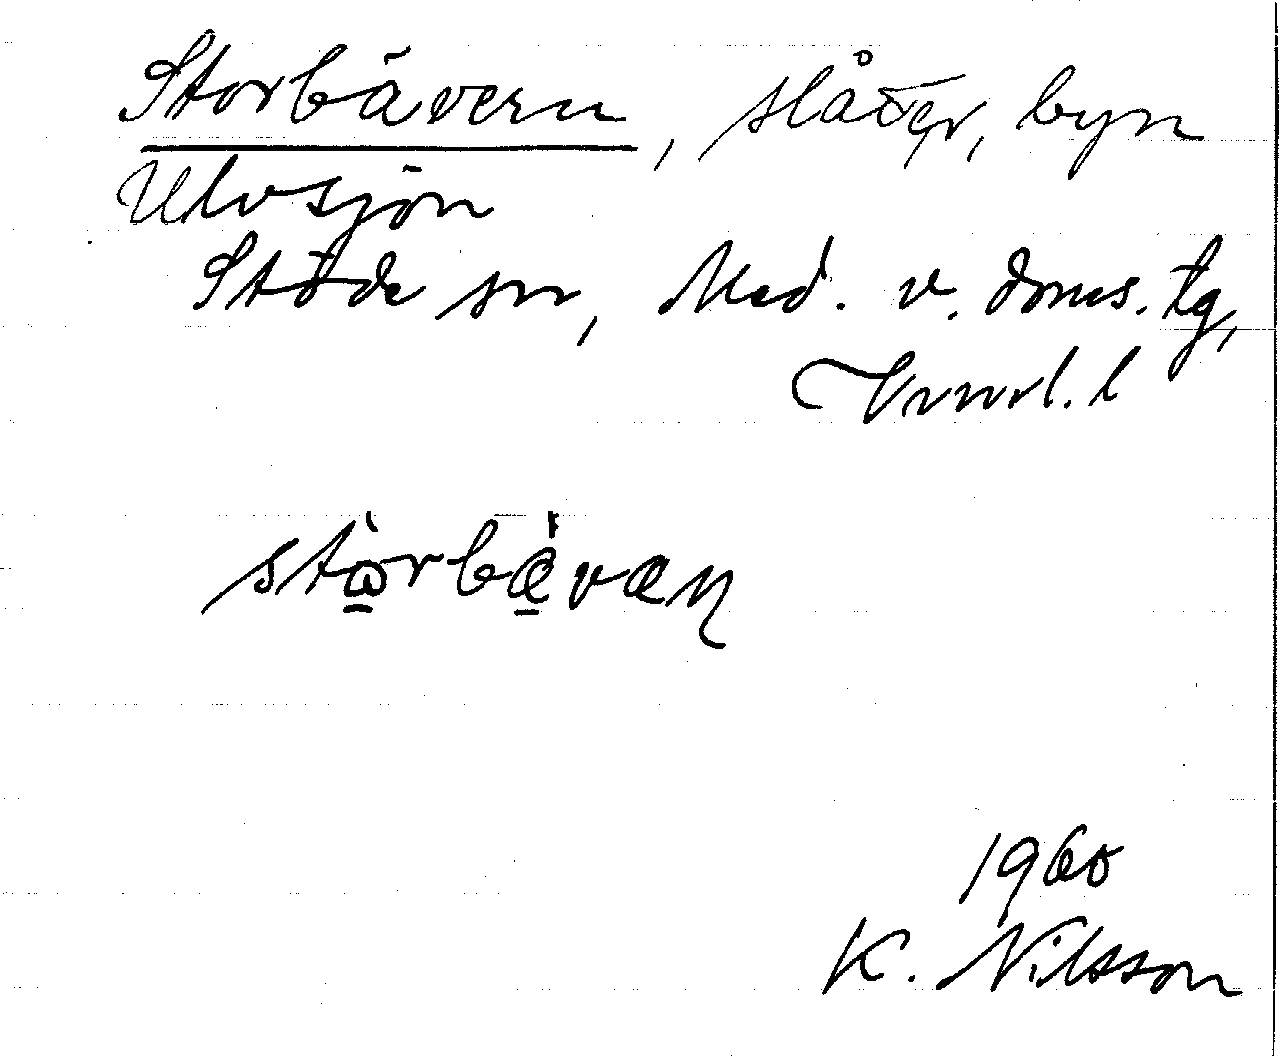 Storbävern, slåtter, byn
Ulvsjön
Stöde sn, Med. v. doms. tg,
Vnrl. l
1960
K. Nilsson